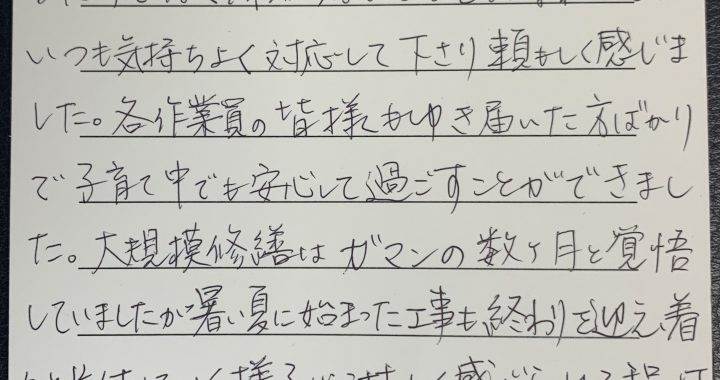 いつも気持ちよく対応して下さり頼もしく感じま
した。各作業員の皆様もゆき届いた方ばかり
で子育て中でも安心して過ごすことができまし
た。大規模修繕はガマンの数ヶ月と覚悟
していましたが暑い夏に始まった工事も、終わりを迎え、着